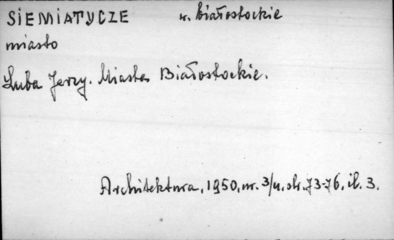 SIEMIATYCZE w. białostockie
miasto
Luba Jerzy. Miasta Białostockie.
Architektura, 1950, nr. 3/4, str. 73-76, il. 3.